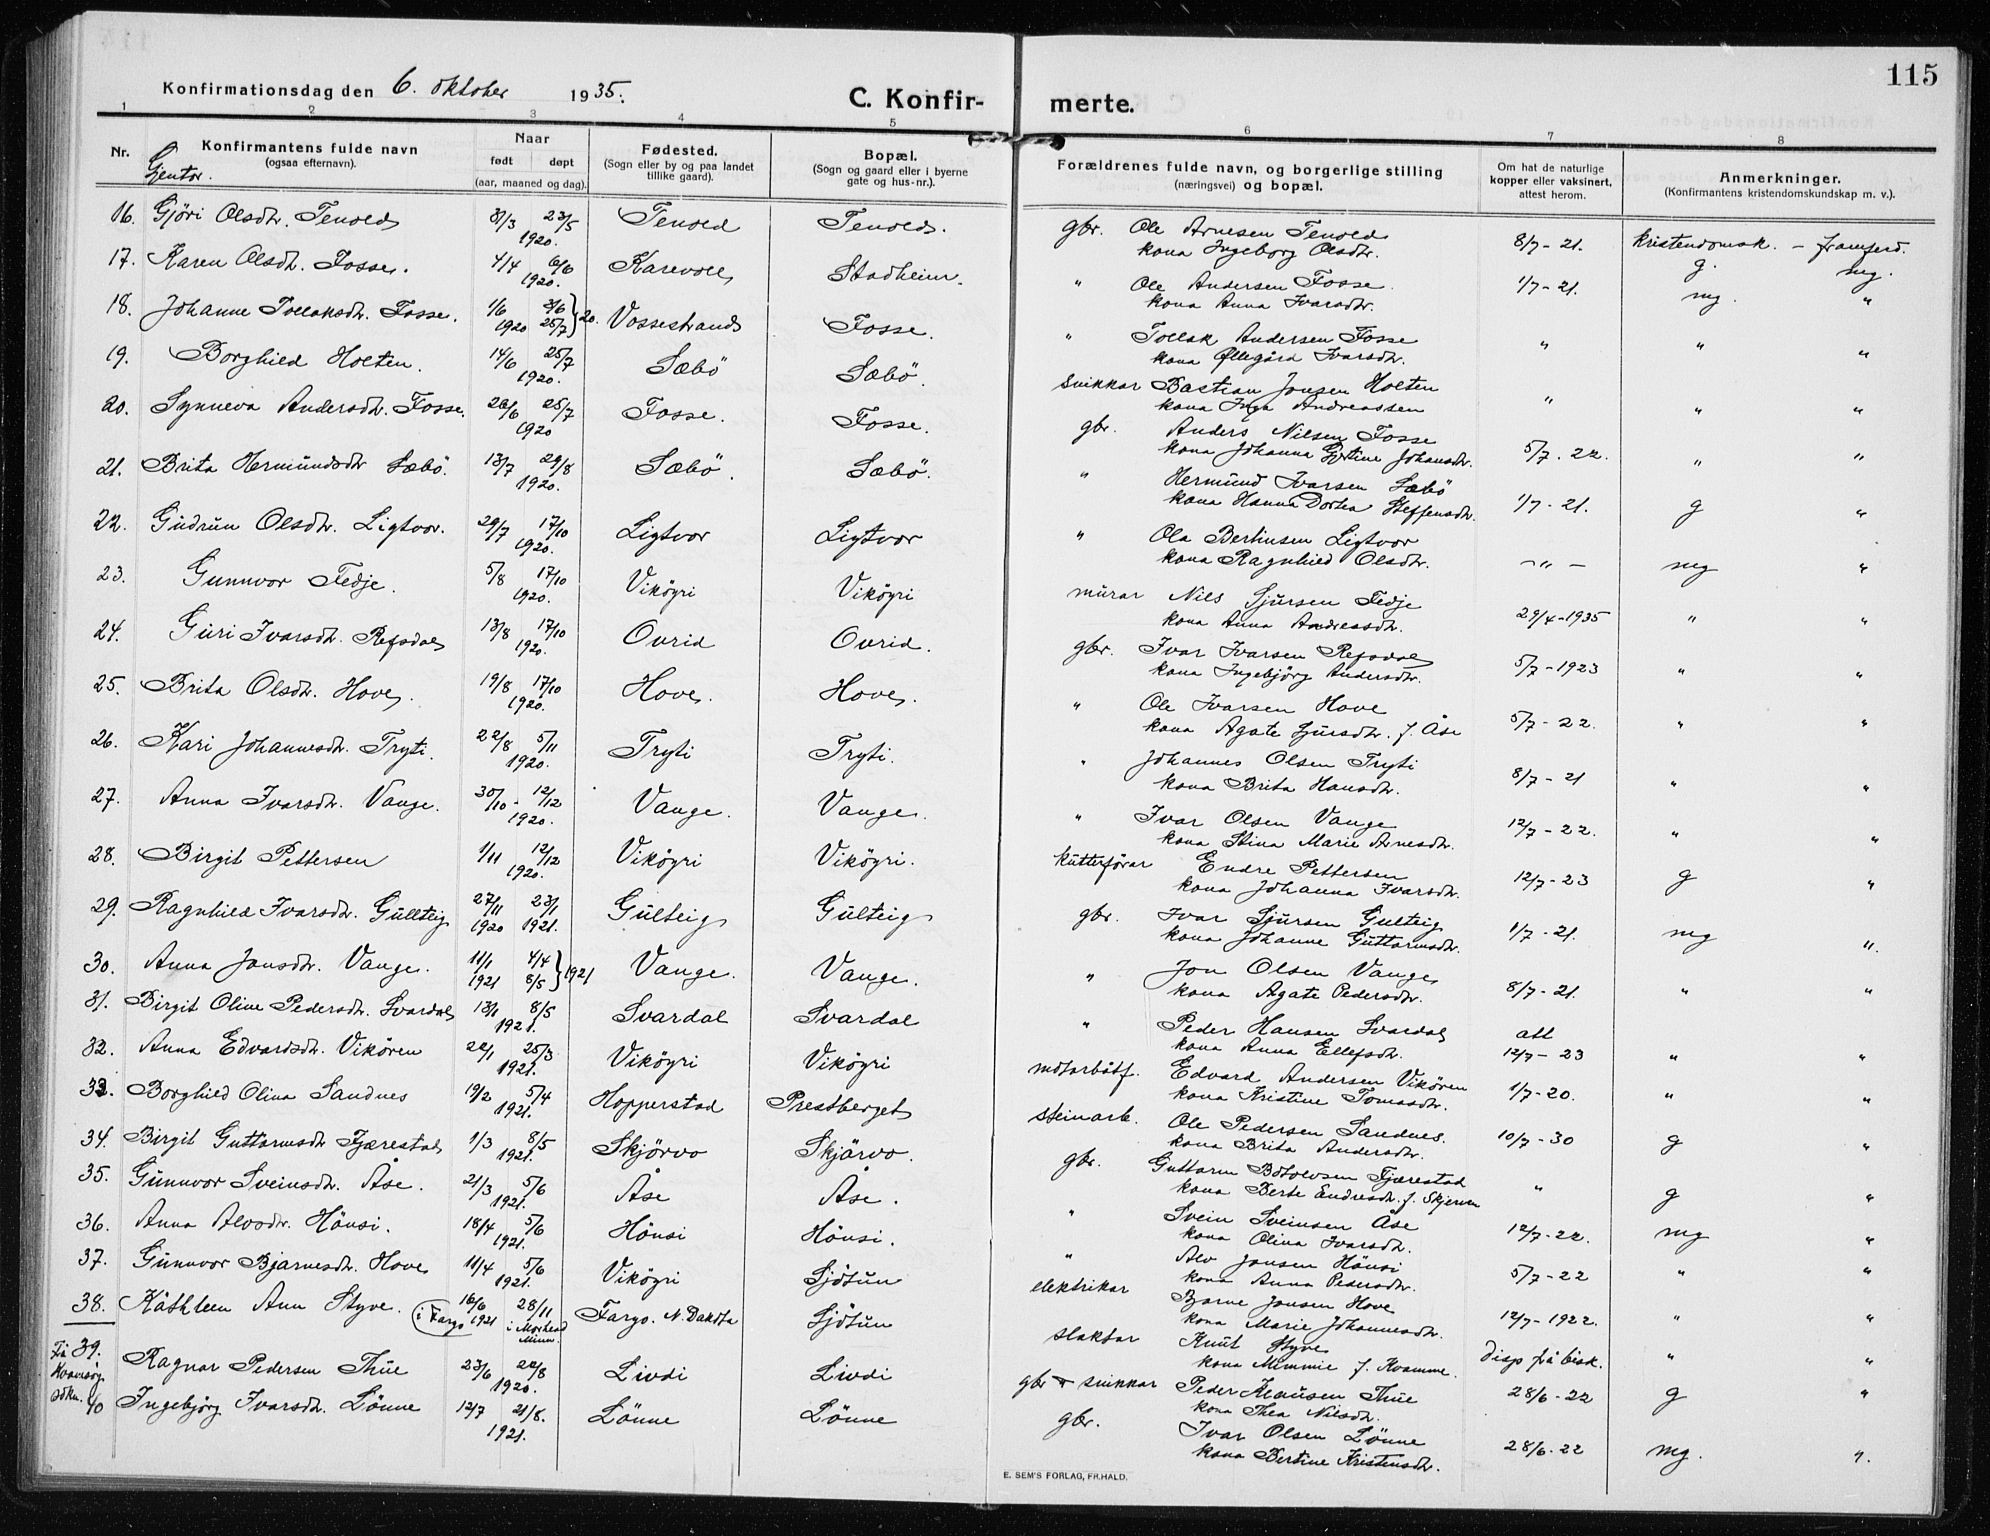 115
Konfirmationsdag den 6. oktober 1935.
C. Konfir-
merte.
1 2 3 4 5 6 7 8
Nr.
Konfirmantens fulde navn
(ogsaa efternavn).
Gjentor.
Naar
født døpt
(aar, maaned og dag).
Fødested.
(Sogn eller by og paa landet
tillike gaard).
Bopæl.
(Sogn og gaard eller i byerne
gate og hus-nr.).
Forældrenes fulde navn, og borgerlige stilling
(næringsvei) og bopæl.
Om hat de naturlige
kopper eller vaksinert,
attest herom.
Anmerkninger.
(Konfirmantens kristendomskundskap m. v.).
kristendomsk. - framferd.
16. Gjöri Olsdtr. Tenold 23/5 1920. Tenold Tenold. gbr. Ole Arnesen Tenold 8/7-21. g. mg.
kona Ingeborg Olsdtr.
17. Karen Olsdtr. Fosse. 4/4 6/6 1920. Karevoll Stadheim. " Ole Andersen Fosse. 1/7-21. mg. "
kona Anna Ivarsdtr.
18. Johanne Tollaksdtr. Fosse. 1/6 1920 25/7 } 20. Vossestrand Fosse. " Tollak Andersen Fosse " " "
kona Øllegård Ivarsdtr.
19. Borghild Holten. 14/6 25/7 1920. Sæbö Sæbö. snikkar Bastian Jonsen Holten " " "
kona Inga Andreassen
20. Synneva Andersdtr. Fosse. 22/6 25/7 1920 Fosse. Fosse. gbr. Anders Nilsen Fosse 5/7-22. " "
kona Johanna Gjertine Johansdtr.
21. Brita Hermundsdtr Sæbö. 13/7 29/8 1920. Sæbö. Sæbö. " Hermund Ivarsen Sæbö 1/7-21. g "
kona Hanna Dortea Steffensdtr.
22. Gudrun Olsdtr. Ligtvor. 29/7 17/10 1920. Ligtvor Ligtvor " Ola Bertinsen Ligtvor -"- mg "
kona Ragnhild Olsdtr.
23. Gunnvor Fedje. 5/8 17/10 1920. Vikøyri Vikøyri murar Nils Sjursen Fedje 29/4-1935 " "
kona Anna Andreasdtr.
24. Guri Ivarsdtr. Refsdal 13/8 17/10 1920. Ovrid Ovrid. gbr. Ivar Ivarsen Refsdal 5/7-1923 " "
kona Ingebjörg Andersdtr.
25. Brita Olsdtr. Hove. 19/8 17/10 1920. Hove. Hove. " Ole Ivarsen Hove 5/7-22. " "
kona Agate Sjursdtr. f. Åse
26. Kari Johannesdtr. Tryti. 22/8 5/11 1920. Tryti Tryti. " Johannes Olsen Tryti 8/7-21 " "
kona Brita Hansdtr.
27. Anna Ivarsdtr. Vange. 30/10 - 12/12 1920. Vange. Vange. " Ivar Olsen Vange 12/7-22. " "
kona Stina Marie Arnesdtr.
28. Birgit Pettersen 1/11 12/12 1920. Vikøyri Vikøyri. kutterförar Endre Pettersen 12/7-23 g "
kona Johanna Ivarsdtr.
29. Ragnhild Ivarsdtr. Gullteig 27/11 1920 23/1 1921. Gulteig Gulteig gbr. Ivar Sjursen Gulteig 1/7-21. mg "
kona Johanne Guttormsdtr.
30. Anna Jonsdtr. Vange. 11/1 1921 4/4 8/5 } 1921 Vange. Vange. " Jon Olsen Vange 8/7-21. " "
kona Agate Pedersdtr.
31. Birgit Oline Pedersdtr. Svardal 13/1 8/5 1921. Svardal Svardal " Peder Hansen Svardal att 12/7-23 " "
kona Anna Ellefsdtr.
32. Anna Edvardsdtr. Vikören 22/1 25/3 1921. Vikøyri Vikøyri motorbåtf. Edvard Andersen Vikören 1/7-20. " "
kona Kristine Tomasdtr.
33. Borghild Olina Sandnes 19/2 5/4 1921. Hopperstad Prestberget steinarb. Ole Pedersen Sandnes. 10/7-30 g "
kona Brita Andersdtr.
34. Birgit Guttormsdtr Fjærestad 1/3 8/5 1921. Skjörvo Skjärvo. gbr. Guttorm Botolvsen Fjærestad " g "
kona Berte Endresdtr. f. Skjerven
35. Gunnvor Sveinsdtr. Åse. 21/3 5/6 1921. Åse Åse. " Svein Sveinsen Åse 12/7-22. mg "
kona Olina Ivarsdtr.
36. Anna Alvsdtr. Hönsi. 18/4 5/6 1921. Hönsi Hönsi. " Alv Jonsen Hönsi 5/7-22 " "
kona Anna Pedersdtr.
37. Gunnvor Bjarnesdtr. Hove 11/4 5/6 1921. Vikøyri Sjötun elektrikar Bjarne Jonsen Hove 12/7-1922. " "
kona Marie Johannesdtr.
38. Kathleen Ann Styve. i Fargo 16/6 1921 28/11 i Morhead Minn. Fargo. N. Dakota Sjötun slaktar Knut Styve disp frå bisk. " "
kona Mimmie f. Kvamme.
Frå Kvamsøy sokn.
39. Ragnar Pedersen Thue 23/6 22/8 1920. Livdi Livdi gbr + snikkar Peder Klausen Thue 28/6-22 g "
kona Thea Nilsdtr.
40 Ingebjörg Ivarsdtr. Lönne 12/7 21/8. 1921. Lönne Lönne gbr. Ivar Olsen Lönne 28/6-22 mg. "
kona Bertine Kristensdtr.
E. SEM'S FORLAG, FR.HALD.